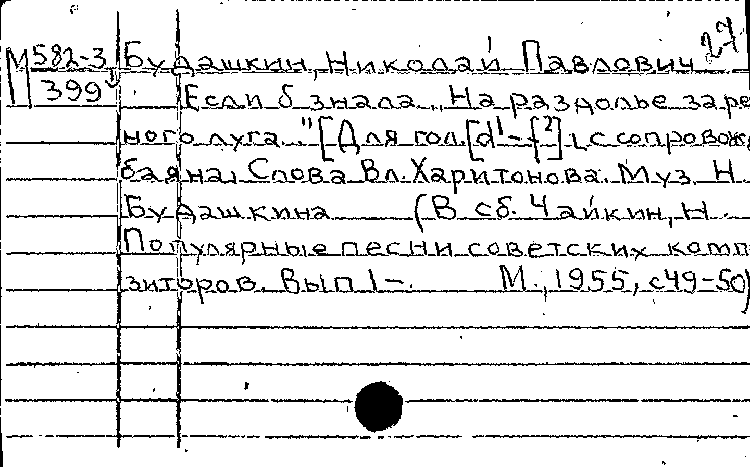 27
М 582-3 Будашкин, Николай Павлович
399 Если б знала „На раздолье заре
ного луга..." [Для гол. [d¹-f²], с сопровож
баяна. Слова Вл. Харитонова. Муз. Н.
Будашкина (В сб. Чайкин, Н.
Популярные песни советских комп
зиторов. Вып 1-. М., 1955, с49-50)